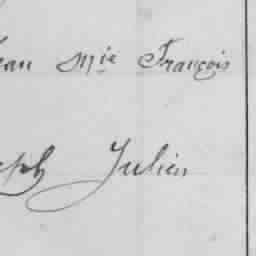 ean Mie François
eph Julien